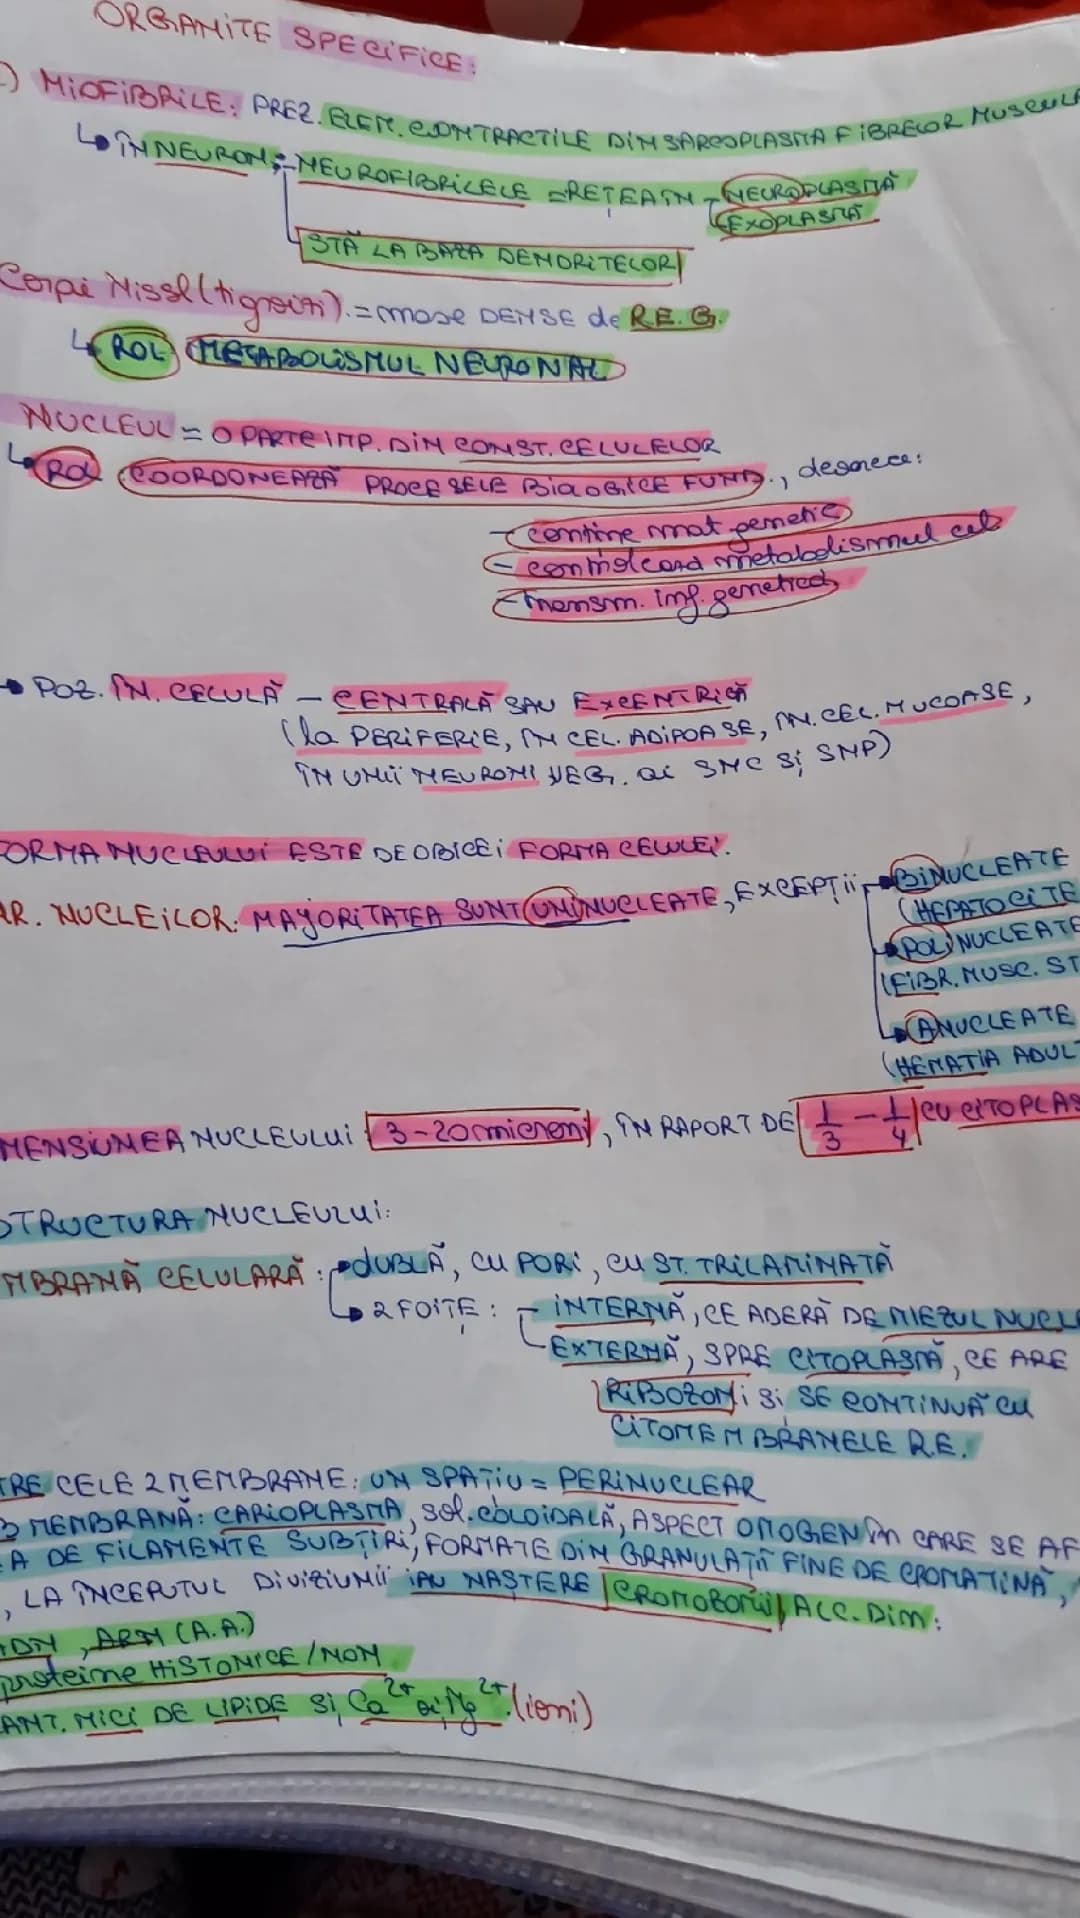 ORGANITE SPECIFICE:
) MIOFIBRILE: PREZ. ELEM. CONTRACTILE DIN SARCOPLASMA FIBRELOR MUSCULA
ÎN NEURON: - NEUROFIBRILELE = REȚEA ÎN - NEUROPLASMĂ
EXOPLASMĂ
STĂ LA BAZA DENDRITELOR
Corpi Nissl (tigroizi). = mase DENSE de R.E.G.
ROL METABOLISMUL NEURONAL
NUCLEUL = O PARTE IMP. DIN CONST. CELULELOR
ROL COORDONEAZĂ PROCESELE BIOLOGICE FUND., deoarece:
- conține mat genetic
- controlează metabolismul cel
- transm. inf. genetică
POZ. ÎN. CELULĂ - CENTRALĂ SAU EXCENTRICĂ
(la PERIFERIE, ÎN CEL. ADIPOASE, ÎN. CEL. MUCOASE,
ÎN UNII NEURONI VEG. ai SNC și SNP)
FORMA NUCLEULUI ESTE DEOBICEI FORMA CELULEI.
AR. NUCLEILOR: MAJORITATEA SUNT UNINUCLEATE, EXCEPȚII BINUCLEATE
(HEPATOCITE
POLINUCLEATE
(FIBR. MUSC. ST
ANUCLEATE
(HEMATIA ADULT
MENSIUNEA NUCLEULUI 3-20 microni, ÎN RAPORT DE 1/3 - 1/4 CU CITOPLAS
STRUCTURA NUCLEULUI:
MBRANĂ CELULARĂ: DUBLĂ, CU PORI, CU ST. TRILAMINATĂ
2 FOIȚE: - INTERNĂ, CE ADERĂ DE MIEZUL NUCLE
- EXTERNĂ, SPRE CITOPLASMĂ, CE ARE
RIBOZOMI și SE CONTINUĂ CU
CITOMEMBRANELE R.E.
TRE CELE 2 MEMBRANE: UN SPAȚIU = PERINUCLEAR
B MEMBRANĂ: CARIOPLASMA, sol. COLOIDALĂ, ASPECT OMOGEN ÎN CARE SE AF
A DE FILAMENTE SUBȚIRI, FORMATE DIN GRANULAȚII FINE DE CROMATINĂ,
, LA ÎNCEPUTUL DIVIZIUNII IAU NAȘTERE CROMOZOMII, ALC. DIN:
ADN, ARN (A.A.)
proteine HISTONICE/NON
CANT. MICI DE LIPIDE și Ca2+ și Mg2+. (ioni)